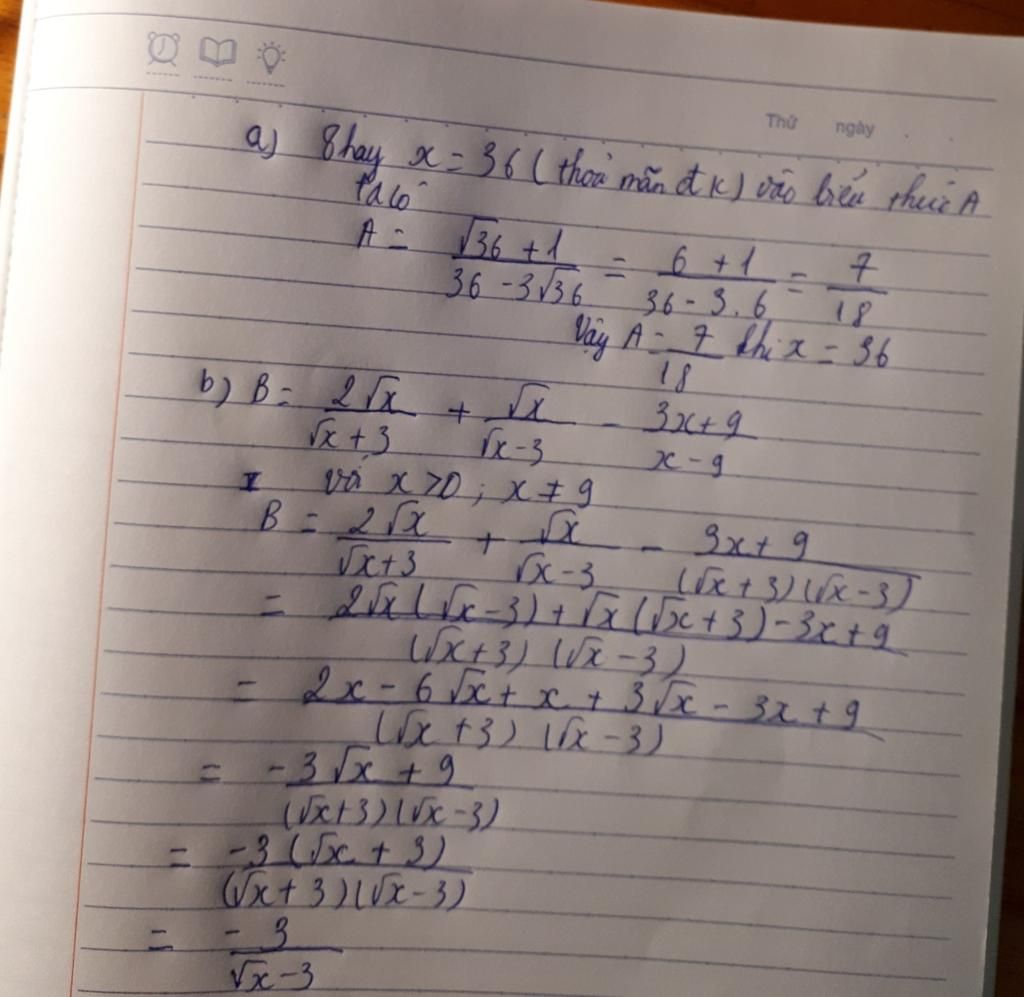 Thứ ngày
a) Thay x = 36 (thoả mãn đk) vào biểu thức A
ta có
A = \frac{√36 + 1}{36 - 3√36} = \frac{6 + 1}{36 - 3.6} = \frac{7}{18}
Vậy A = \frac{7}{18} khi x = 36
b) B = \frac{2√x}{√x + 3} + \frac{√x}{√x - 3} - \frac{3x + 9}{x - 9}
với x > 0 ; x ≠ 9
B = \frac{2√x}{√x + 3} + \frac{√x}{√x - 3} - \frac{3x + 9}{(√x + 3)(√x - 3)}
= \frac{2√x(√x - 3) + √x(√x + 3) - 3x + 9}{(√x + 3)(√x - 3)}
= \frac{2x - 6√x + x + 3√x - 3x + 9}{(√x + 3)(√x - 3)}
= \frac{-3√x + 9}{(√x + 3)(√x - 3)}
= \frac{-3(√x + 3)}{(√x + 3)(√x - 3)}
= \frac{-3}{√x - 3}